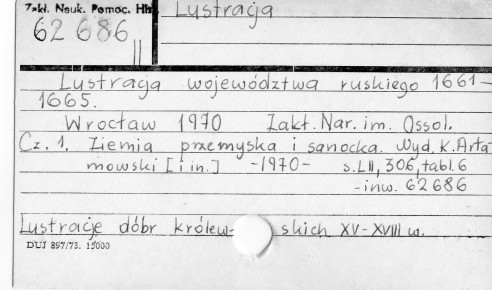 Zakł. Nauk. Pomoc. Hist.
62 686
II
Lustracja
Lustracja województwa ruskiego 1661-
1665.
Wrocław 1970 Zakt. Nar. im. Ossol.
Cz. 1. Ziemia przemyska i sanocka. Wyd. K. Arta
mowski [i in.] -1970- s. LII, 306, tabl. 6
-inw. 62686
Lustracje dóbr królew- skich XV-XVIII w.
DUJ 897/73. 15000